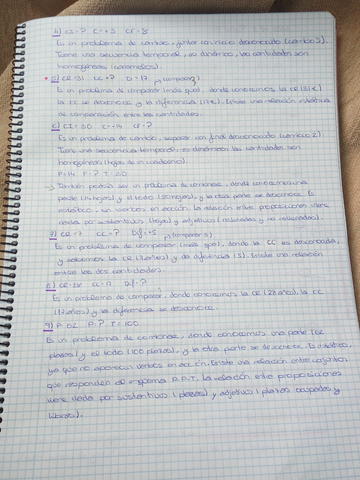 4) CI = ? C = +3 CF = 8
Es un problema de cambio, juntar con inicio desconocido (cambio 5).
Tiene una secuencia temporal, es dinámico, las cantidades son
homogéneas (caramelos).
5) CR = 31 CC = ? D = 17 (comparar)
Es un problema de comparar (más que), donde conocemos la CR (31€)
la CC se desconoce y la diferencia (17€). Existe una relación estática
de comparación entre las cantidades.
6) CI = 30 C = -14 CF = ?
Es un problema de cambio, separar con final desconocido (cambio 2)
Tiene una secuencia temporal, es dinámico, las cantidades son
homogéneas (hojas de un cuaderno).
P = 14 P = ? T = 30
→ También podría ser un problema de combinar, donde conocemos una
parte (14 hojas) y el todo (30 hojas), y la otra parte se desconoce. Es
estático, sin verbos en acción. La relación entre proposiciones viene
dada por sustantivos (hojas) y adjetivos
7) CR = 7 CC = ? Dif = +5 (comparar 3)
Es un problema de comparar (más que), donde la CC es desconocida,
y sabemos la CR (7 años) y la diferencia (5). Existe una relación
entre las dos cantidades.
8) CC = 17 Dif = ?
Es un problema de comparar, donde conocemos la CR (28 años), la CC
(17 años) y la diferencia se desconoce.
9) P = 62 P = ? T = 100
Es un problema de combinar, donde conocemos una parte (62
plazas) y el todo (100 plazas), y la otra parte se desconoce. Es estático,
ya que no aparecen verbos en acción. Existe una relación entre conjuntos
que responden al esquema P.P.T. La relación entre proposiciones
viene dada por sustantivos (plazas) y adjetivos (plazas ocupadas y
libres).